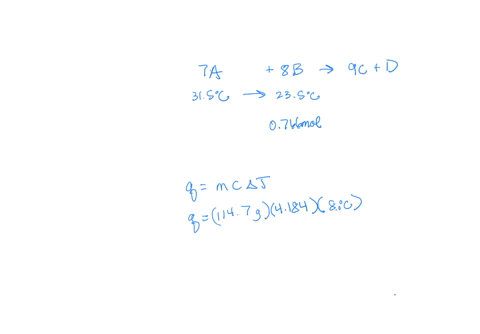 7A + 8B → 9C + D
31.5°C → 23.5°C
0.766mol
q = m C ΔT
q = (114.7g)(4.184)(8.0°C)